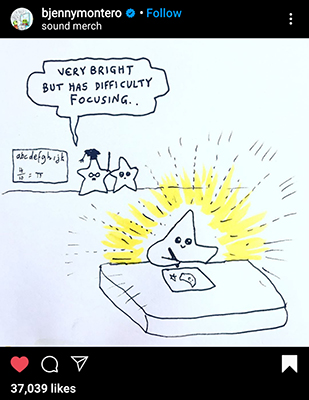 bjennymontero • Follow
sound merch
VERY BRIGHT
BUT HAS DIFFICULTY
FOCUSING..
abcdefghijk
= π
37,039 likes